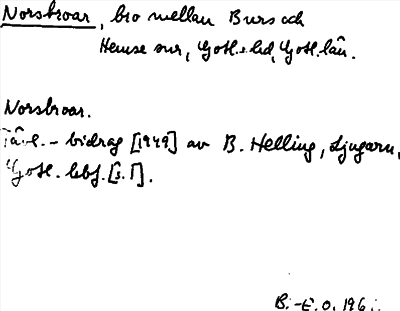 Norsbroar, bro mellan Burs och
Hemse snr, Gotl. s. hd, Gotl. län.
Norsbroar.
Tävl.-bidrag [1949] av B. Helling, Ljugarn,
Gotl. lbf. [s. 1].
B.-E. O. 196